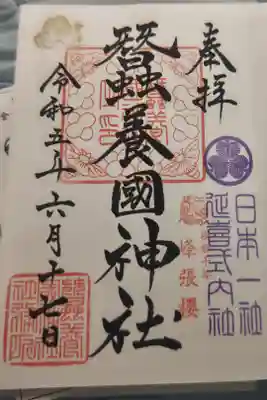 奉拝
日本一社
延喜式内社
峰張櫻
蠶養國神社
令和五年六月十七日